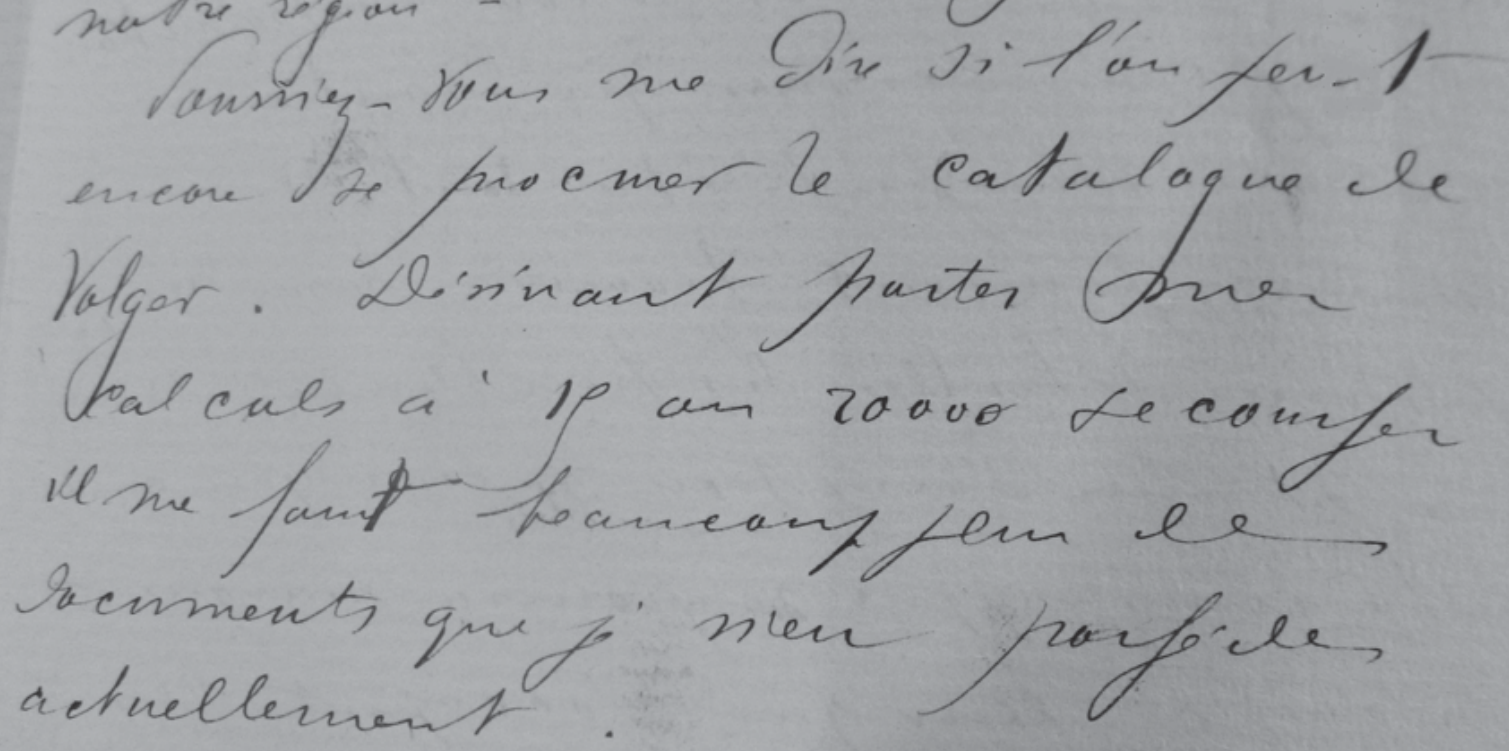 notre région -
Pourriez-vous me dire si l'on peut
encore se procurer le catalogue de
Volger. Désirant porter mes
calculs à 15 ou 20000 secousses
il me faut beaucoup plus de
documents que je n'en possède
actuellement.